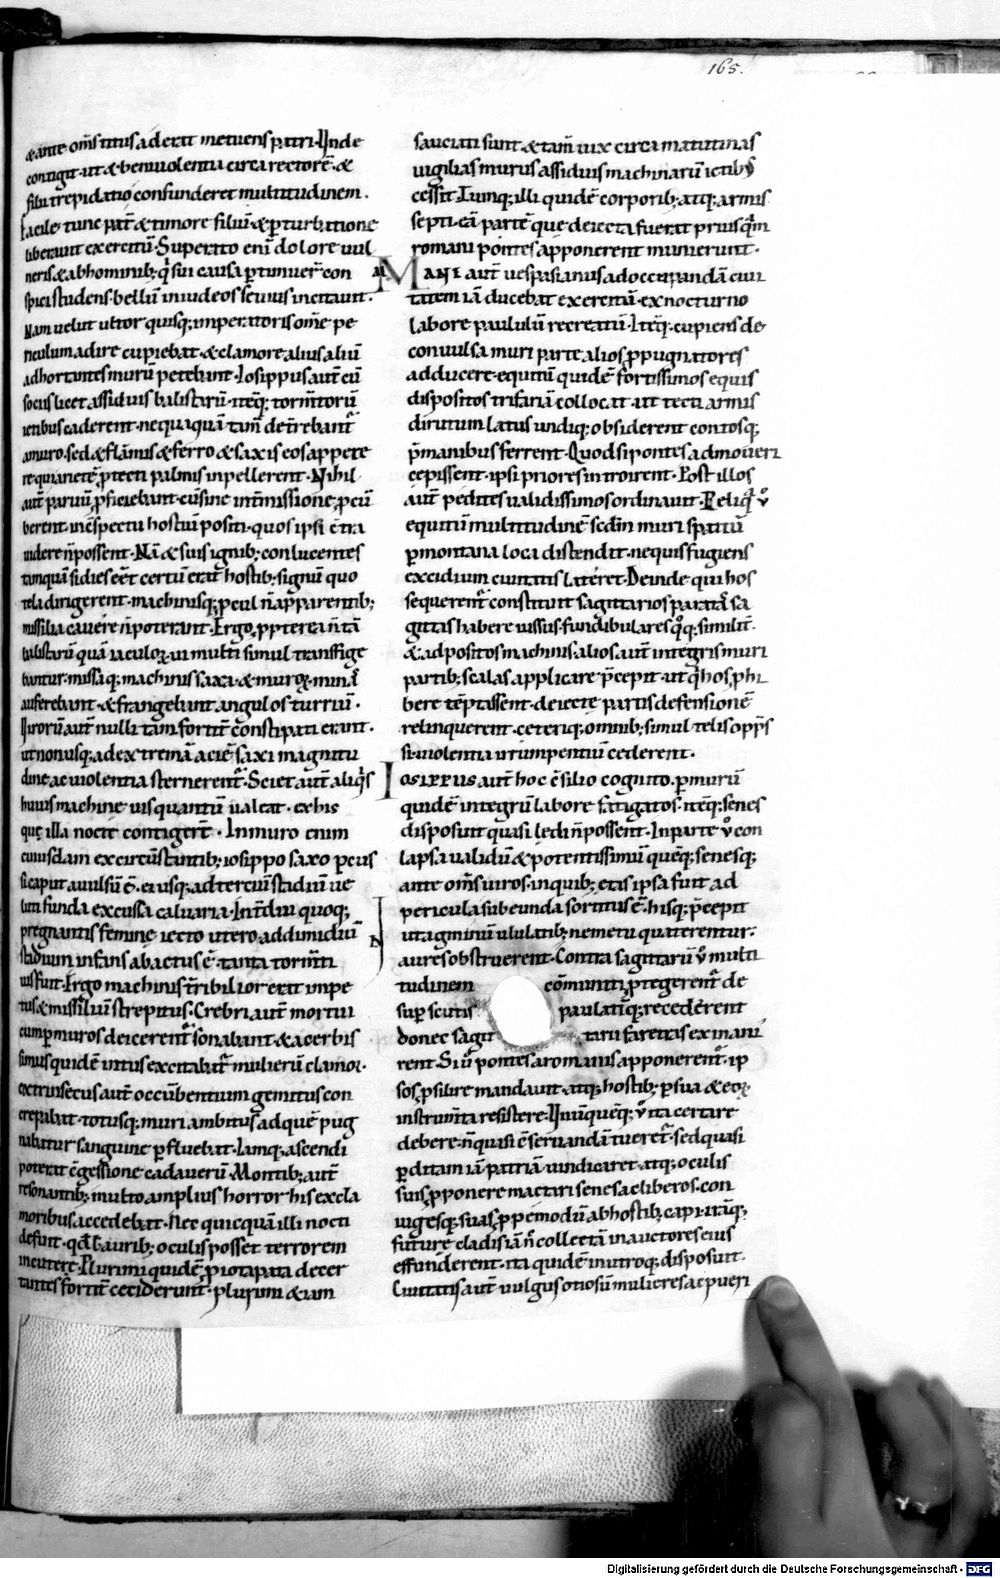 165.
& ante om̄s titus aderat metuens patri. Unde
contigit ut & beniuolentia circa rectorē. &
filii trepidatio confunderet multitudinem.
Facile tunc pat̄ & timore filiū & ꝑturbatione
liberauit exercitū. Superato eni dolore uul
neris & ab hominib; q̇ sui causa ꝑtimuer̄ con
spici studens. bellū in iudeos seuius incitauit.
Nam uelut ultor quisq; imperatoris om̄e pe
riculum adire cupiebat. & clamore alius aliū
adhortantes murū petebant. Iosippus aut̄ cū
sociis licet assiduis balistarū. itēq; tormtorū
ictibus caderent. nequaquā tam̄ det̄rebant̄
a muro. sed & flāmis & ferro & saxis eos appete
re qui ariete ꝓtecti palmis inpellerent. Nihil
aut̄ paruū ꝓficiebant. cū sine int̄missione ꝓcū
berent. in cspectu hostiū positi. quos ipsi c̄tra
uidere n̄ possent. Nā & suis ignib; conlucentes
tamquā si dies eēt certū erat hostib; signū quo
tela dirigerent. machinisq; ꝓcul n̄ apparentib;
missilia cauere n̄ poterant. Ergo ꝓpterea n̄ tā
balistarū quā iaculoꝝ ui multi simul transfige
bantur. missaq; machinis saxa & muroꝝ minā
auferebant. & frangebant angulos turriū.
Uiroꝝ aut̄ nulli tam fortit̄ constipati erant.
ut non usq; ad extremā aciē saxi magnitu
dine ac uiolentia sternerent̄. Sciet aut̄ aliq̇s
huius machine uis quantū ualeat. ex his
quę illa nocte contiger̄t. In muro enim
cuiusdam ex circūstantib; iosippo saxo ꝑcus
si caput auulsū ē. eiusq; ad terciū stadiū ue
luti funda excussa caluaria. Int̄diu quoq;
pregnantis feminę iecto utero. ad dimidiū
stadium infans abactus ē. tanta tormti
uis fuit. Ergo machinis t̄ribilior erat impe
tus. & missiliū strepitus. Crebri aut̄ mortui
cum ꝑ muros deicerent̄ sonabant. & acerbis
simus quidē intus excitabat̄ mulierū clamor.
extrinsecus aut̄ occūbentium gemitus con
crepabat. totusq; muri ambitus ad quē pug
nabatur sanguine ꝑfluebat. Iamq; ascendi
poterat cgessione cadauerū. Montib; aut̄
resonantib; multo amplius horror his excla
moribus accedebat. Nec quicquā illi nocti
defuit. qd̄ ł aurib; ł oculis posset terrorem
incutere. Plurimi quidē ꝓ iotapata decer
tantes fortit̄ ceciderunt. plurimi & iam
sauciati sunt. & tam̄ uix circa matutinas
uigilias murus assiduis machinarū ictib;
cessit. Tumq; illi quidē corporib; atq; armis
septi. eā partē que deiecta fuerat priusq̄m
romani pontes apponerent munierunt.
Mane aut̄ uespasianus ad occupandā ciui
tatem iā ducebat exercitū. ex nocturno
labore paululū recreatū. Itēq; cupiens de
conuulsa muri parte alios ꝓpugnatores
adducere. equitū quidē fortissimos equis
dispositos trifariā collocat. ut tecti armis
dirutum latus undiq; obsiderent contosq;
p̄manibus ferrent. Quod si pontes admoueri
cepissent. ipsi priores introirent. Post illos
aut̄ pedites ualidissimos ordinauit. Reliq̄ v̊
equitū multitudinē sed̄m muri spatiū
ꝑ montana loca distendit. ne quis fugiens
excidium ciuitatis lateret. Deinde qui hos
sequerent̄ constituit sagittarios paratā sa
gittas habere iussus. fundibulares q̊q; similit̄.
& adpositos machinis. alios aut̄ integris muri
partib; scalas applicare p̄cepit. ut q̇ hos ꝓhi
bere tēptassent. deiectę partis defensionē
relinquerent. ceteriq; omnib; simul telis opp̄s
si. uiolentia irrumpentiū cederent.
Iosippus aut̄ hoc c̄silio cognito. ꝑ murū
quidē integrū labore fatigatos. itēq; senes
disposuit quasi lędi n̄ possent. In parte v̊ con
lapsa ualidū & potentissimū quēq; senesq;
ante om̄s uiros. in quib; etas ipsa fuit ad
pericula subeunda sortitus ē. hisq; p̄cepit
ut agminū ululatib; ne metu quaterentur.
aures obstruerent. Contra sagittarū v̊ multi
tudinem cōmuniti ꝓtegerent̄ de
sup̄ scutis paulatīq; recederent
donec sagit tarii faretras exinani
rent. Siū pontes a romanis apponerent̄. ip
sos ꝓsilire mandauit. atq; hostib; ꝑ sua & eoꝝ
instrumta resistere. Unūquēq; v̊ ita certare
debere. n̄ quasi c̄seruandā tueret̄. sed quasi
ꝑditam iā patriā uindicaret. atq; oculis
suis ꝓponere mactari senes ac liberos. con
iugesq; suas ꝓpemodū ab hostib; capi. iraq;
futurę cladis iā n̄c collectā in auctores eius
effunderent. ita quidē in utroq; disposuit.
Ciuitatis aut̄ uulgus otiosū mulieres ac pueri
Digitalisierung gefördert durch die Deutsche Forschungsgemeinschaft - DFG